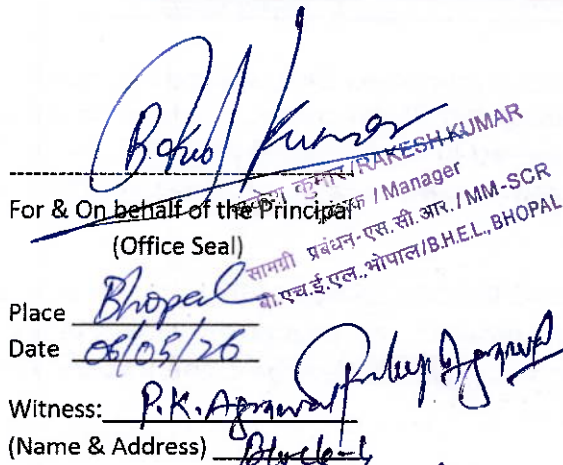 Kumar
राकेश कुमार / RAKESH KUMAR
प्रबंधक / Manager
सामग्री प्रबंधन-एस.सी.आर. / MM-SCR
बी.एच.ई.एल.,भोपाल/B.H.E.L., BHOPAL
For & On behalf of the Principal
(Office Seal)
Place Bhopal
Date 06/05/26
Witness: P.K. Agrawal
(Name & Address)